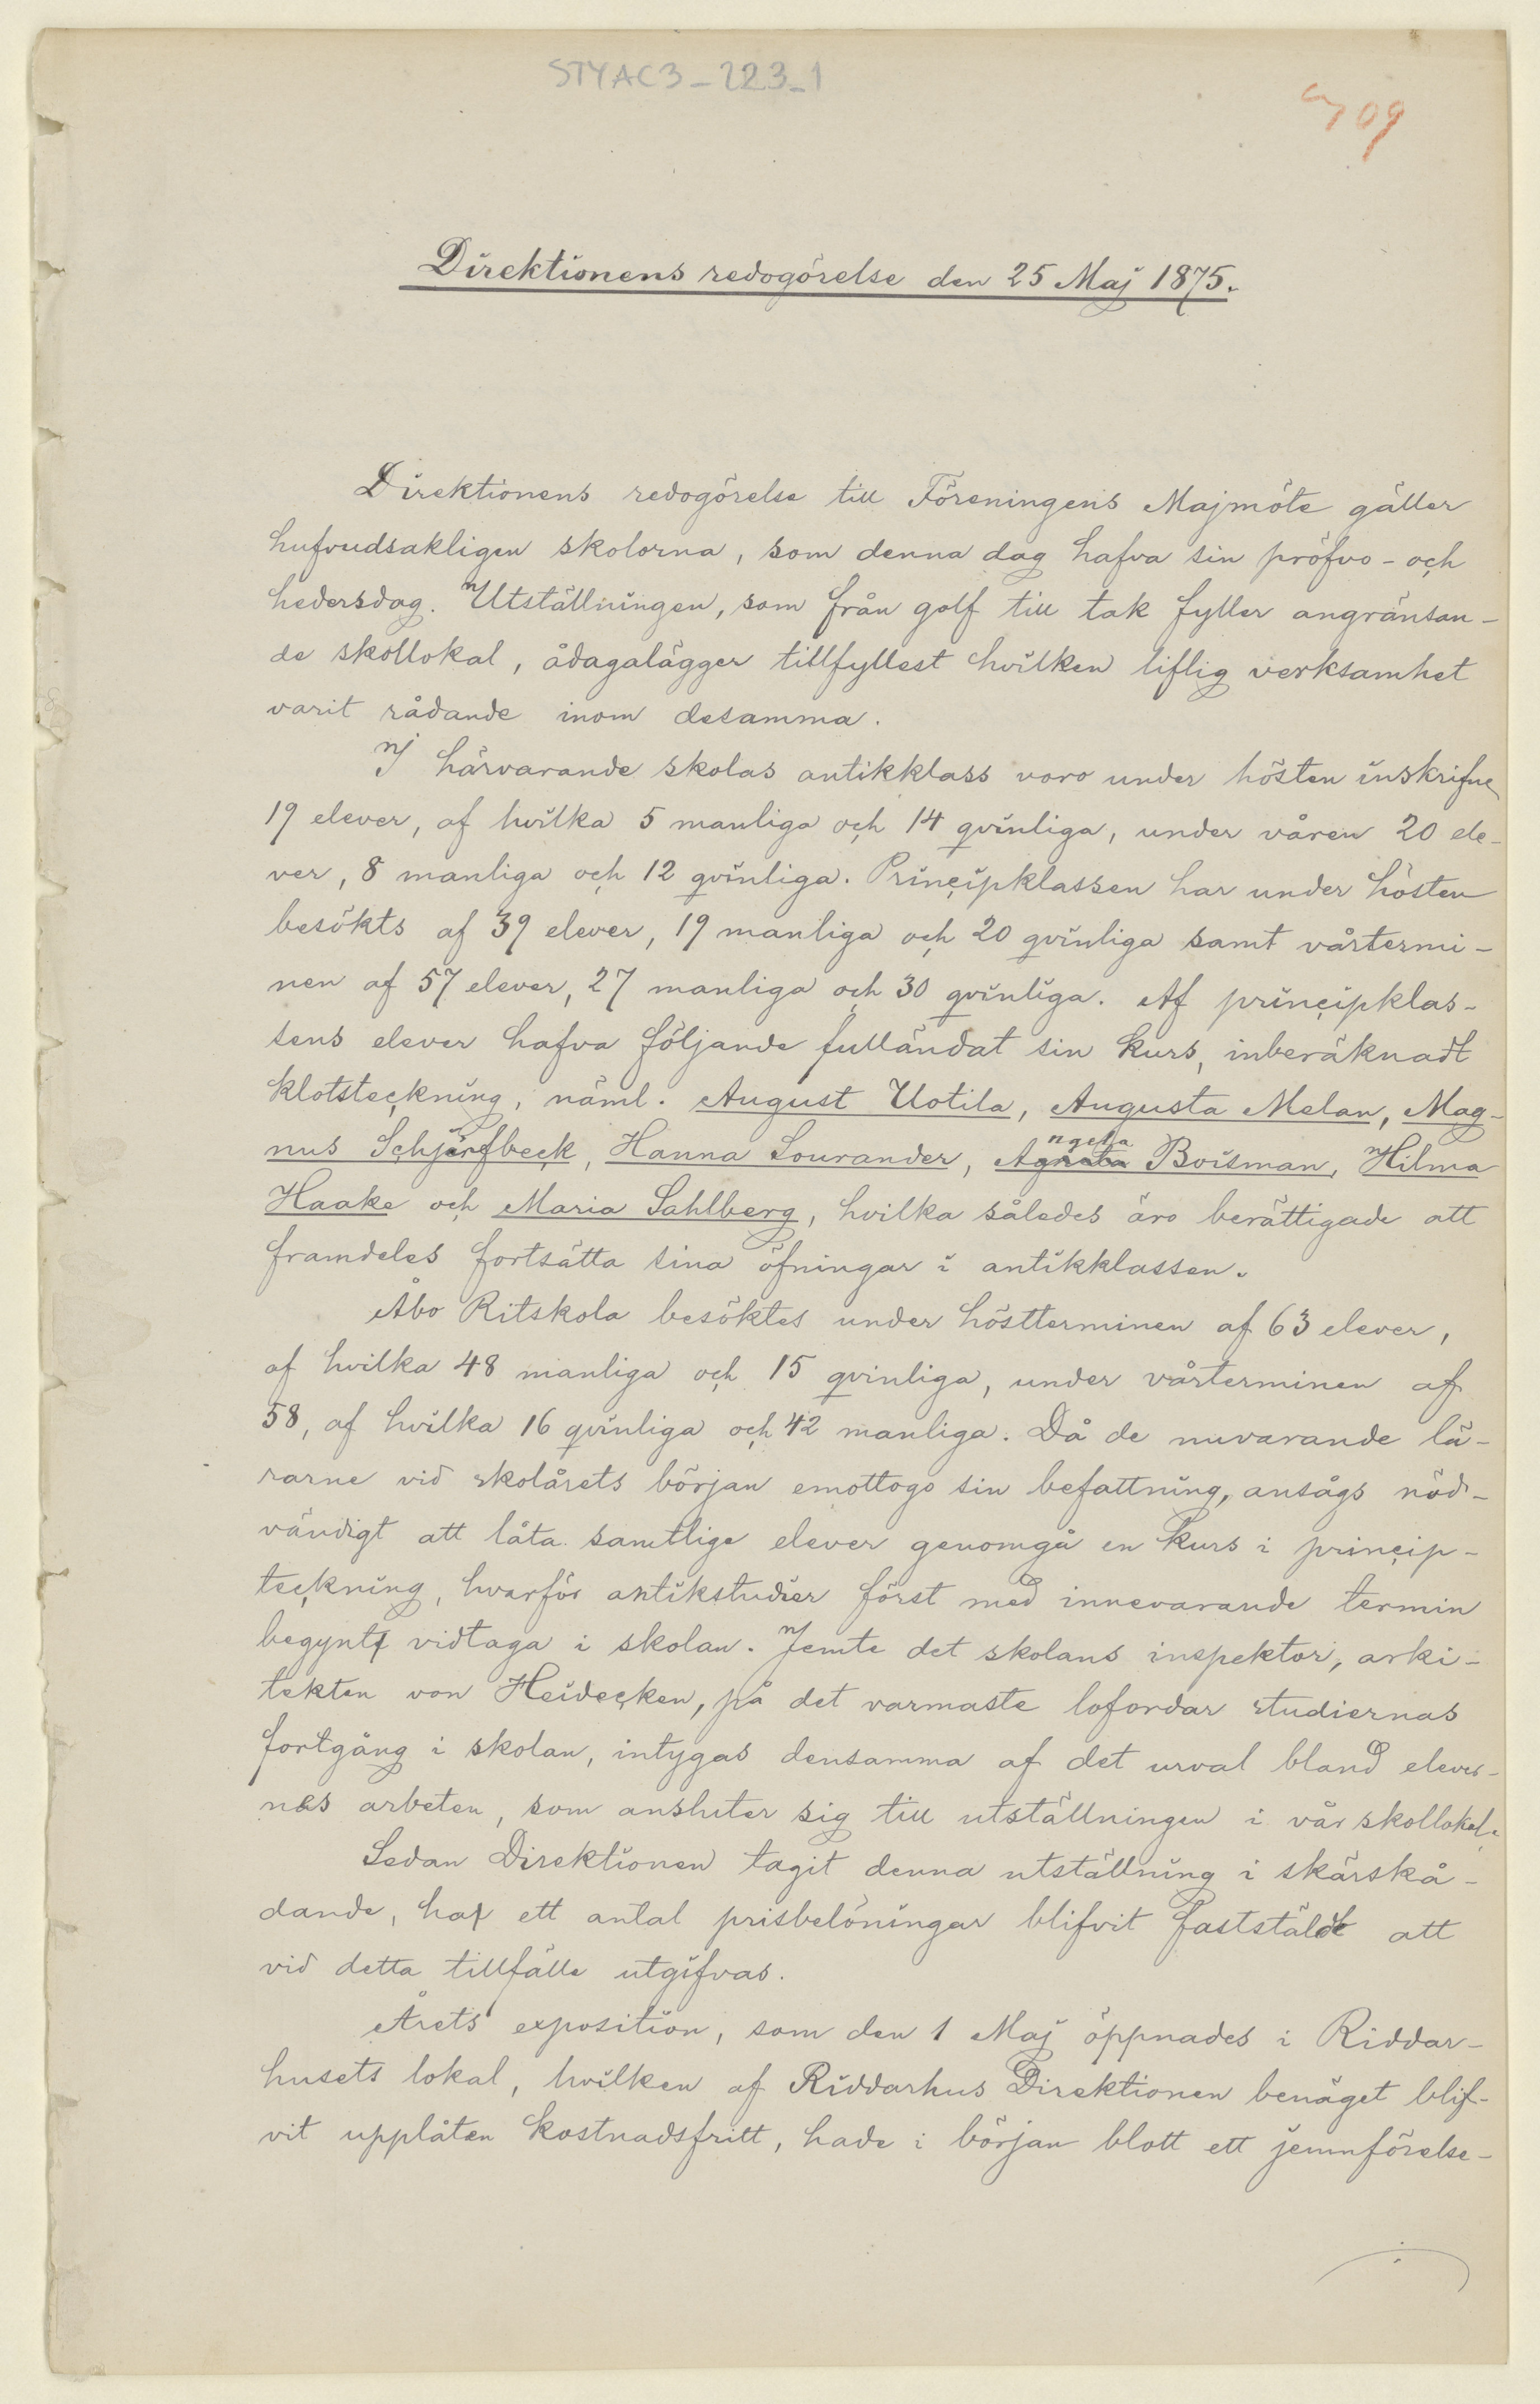 STYAC3_223_1
09
Direktionens redogörelse den 25 Maj 1875.
Direktionens redogörelse till Föreningens Majmöte gäller
hufvudsakligen skolorna, som denna dag hafva sin pröfvo- och
hedersdag. Utställningen, som från golf till tak fyller angränsan-
de skollokal, ådagalägger tillfyllest hvilken liflig verksamhet
varit rådande inom desamma.
I härvarande skolas antikklass voro under hösten inskrifne
19 elever, af hvilka 5 manliga och 14 qvinliga, under våren 20 ele-
ver, 8 manliga och 12 qvinliga. Principklassen har under hösten
besökts af 39 elever, 19 manliga och 20 qvinliga samt vårtermi-
nen af 57 elever, 27 manliga och 30 qvinliga. Af principklas-
sens elever hafva följande fulländat sin kurs, inberäknadt
klotsteckning, näml. August Uotila, Augusta Melan, Mag-
nus Schjerfbeck, Hanna Lourander, Agneta Boisman, Hilma
Haake och Maria Sahlberg, hvilka således äro berättigade att
framdeles fortsätta sina öfningar i antikklassen.
Åbo Ritskola besöktes under höstterminen af 63 elever,
af hvilka 48 manliga och 15 qvinliga, under vårterminen af
58, af hvilka 16 qvinliga och 42 manliga. Då de nuvarande lä-
rarne vid skolårets början emottogo sin befattning, ansågs nöd-
vändigt att låta samtlige elever genomgå en kurs i princip-
teckning, hvarför antikstudier först med innevarande termin
begynt vidtaga i skolan. Jemte det skolans inspektor, arki-
tekten von Heidecken, på det varmaste lofordar studiernas
fortgång i skolan, intygas densamma af det urval bland elever-
nas arbeten, som ansluter sig till utställningen i vår skollokal.
Sedan Direktionen tagit denna utställning i skärskå-
dande, har ett antal prisbelöningar blifvit fastställdt att
vid detta tillfälle utgifvas.
Årets exposition, som den 1 Maj öppnades i Riddar-
husets lokal, hvilken af Riddarhus Direktionen benäget blif-
vit upplåten kostnadsfritt, hade i början blott ett jemnförelse-